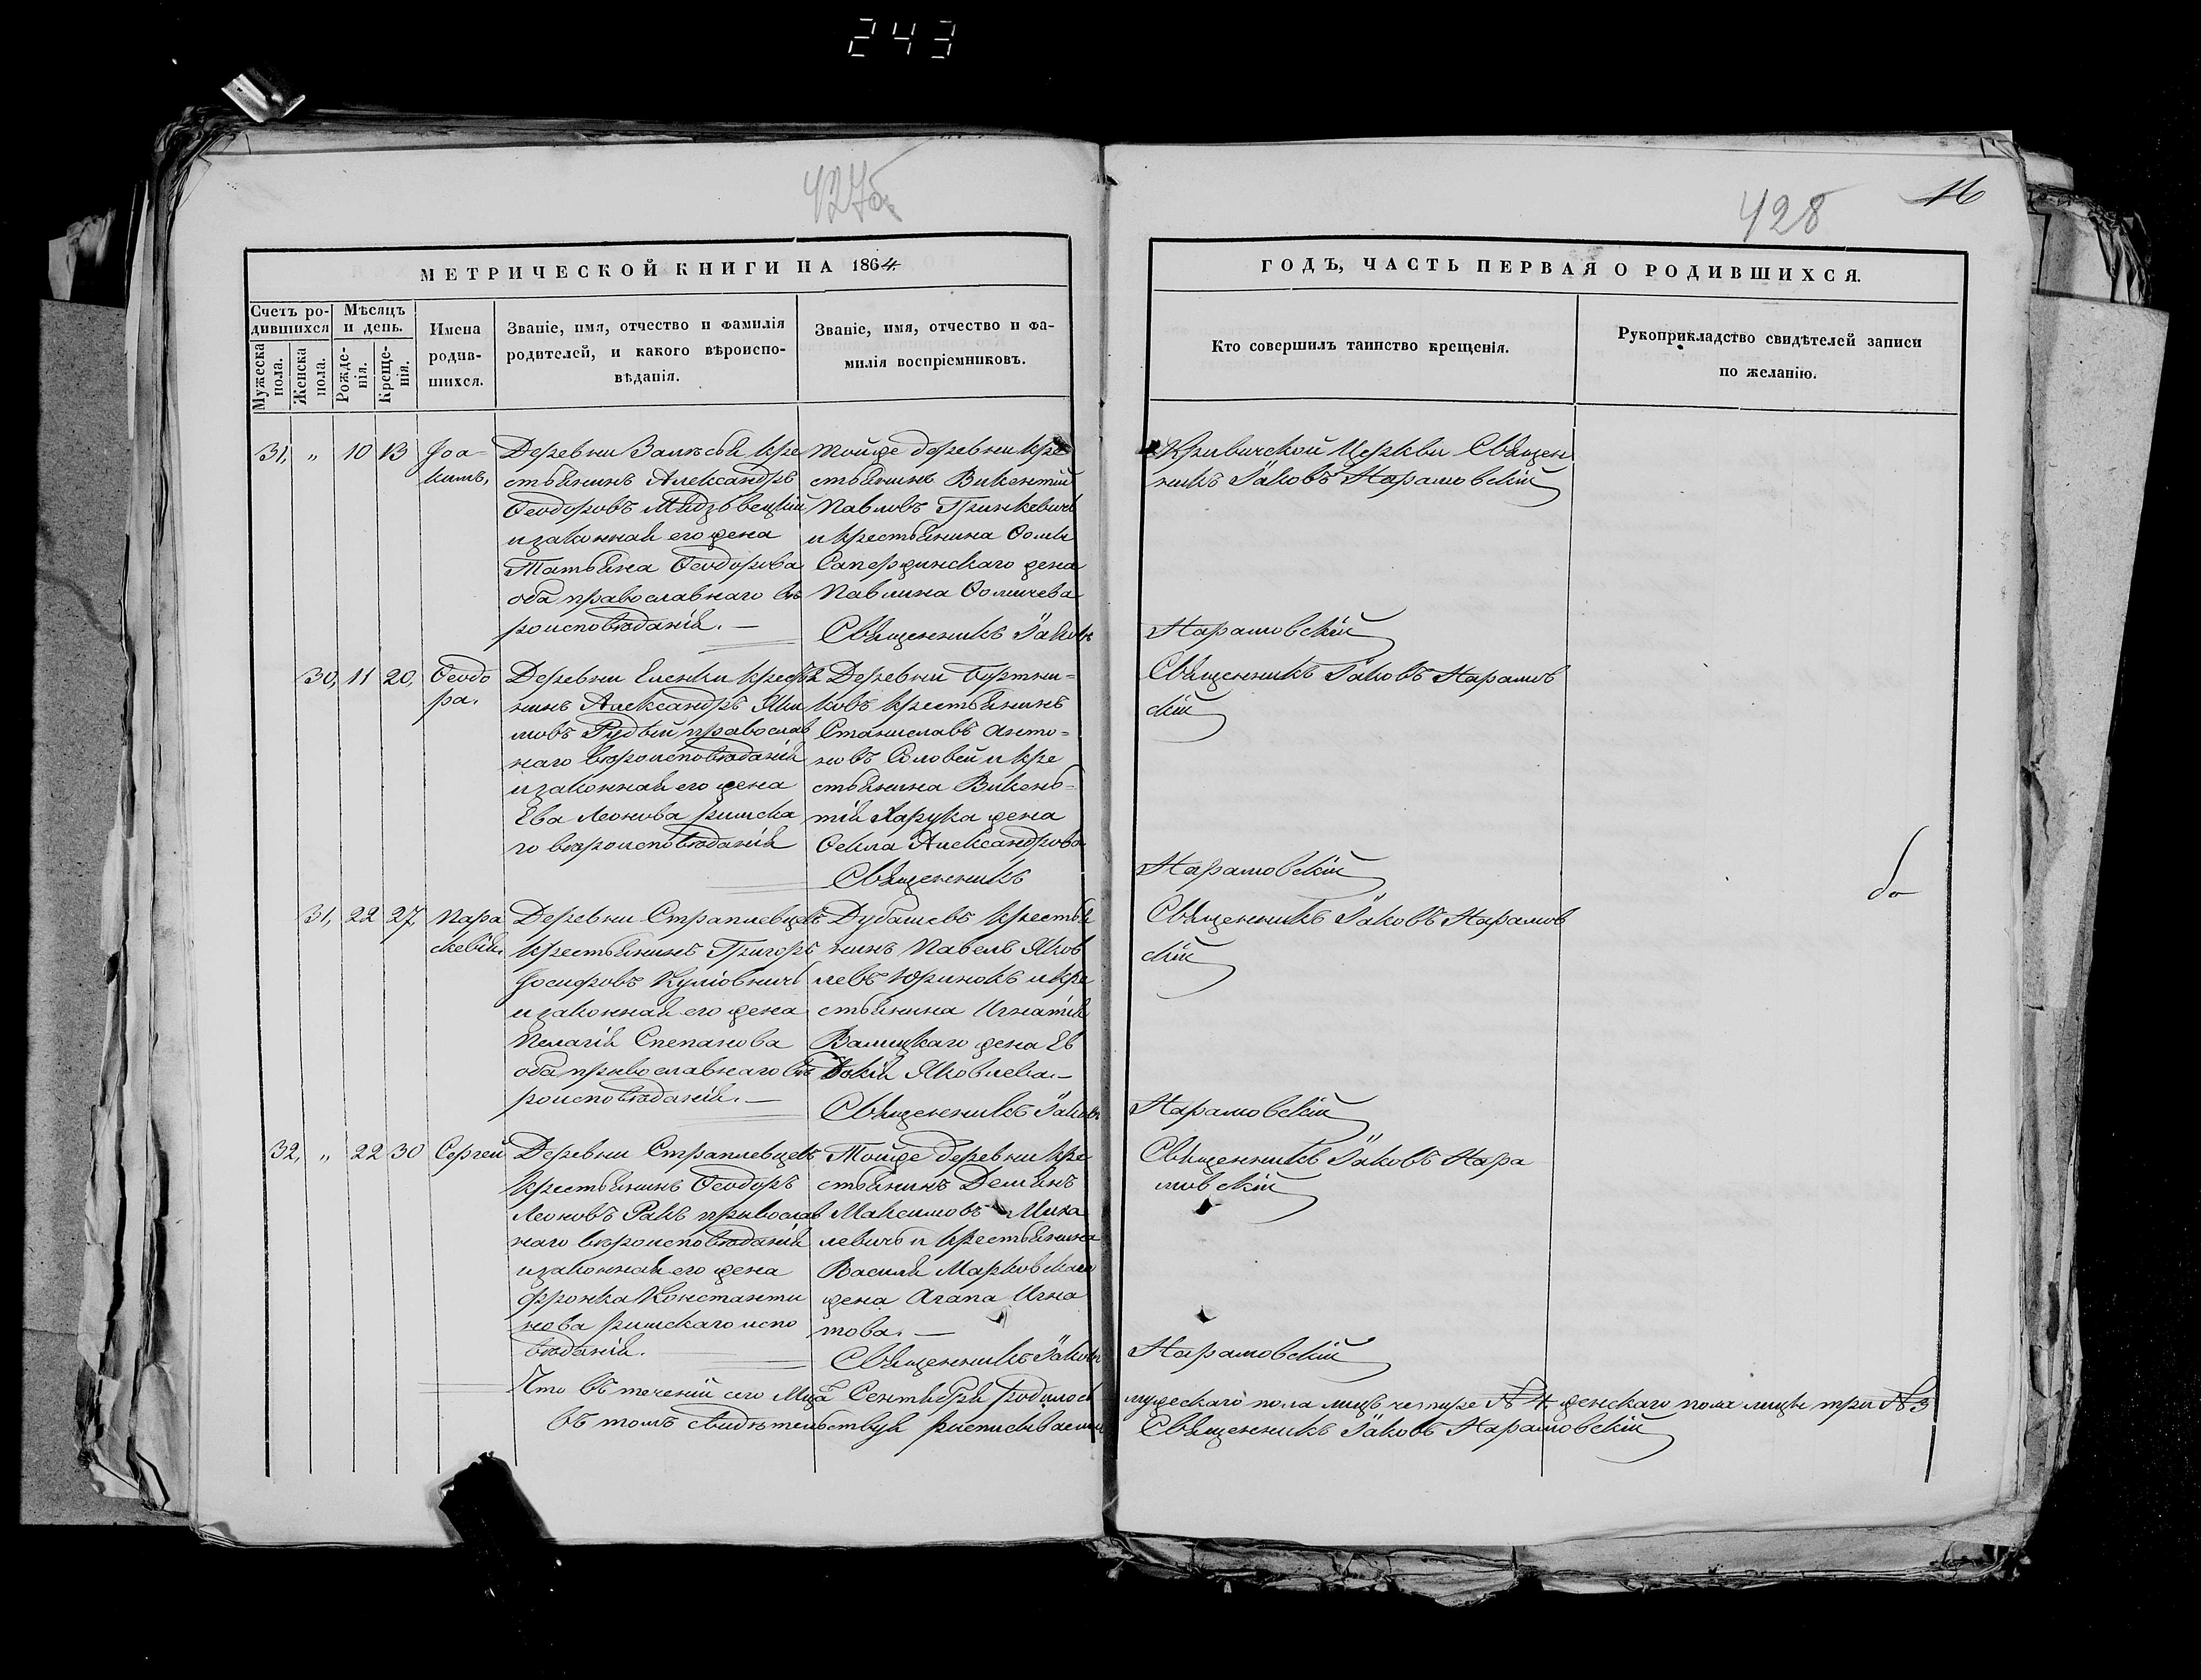 243
427об
428
16
МЕТРИЧЕСКОЙ КНИГИ НА 1864
ГОДЪ, ЧАСТЬ ПЕРВАЯ О РОДИВШИХСЯ.
Счетъ ро-
дившихся
Мужеска пола.
Женска пола.
Мѣсяцъ
и день.
Рожде-
нія.
Креще-
нія.
Имена
родив-
шихся.
Званіе, имя, отчество и фамилія
родителей, и какого вѣроиспо-
вѣданія.
Званіе, имя, отчество и фа-
милія воспріемниковъ.
Кто совершилъ таинство крещенія.
Рукоприкладство свидѣтелей записи
по желанію.
31, „ 10 13 Іоа-
кимъ,
Деревни Залѣсья кре
стьянинъ Александръ
Ѳеодоровъ
и законная его жена
Татьяна Ѳеодорова
оба православнаго вѣ
роисповѣданія. —
тойже деревни кре
стьянинъ Викентій
Павловъ Гринкевичъ
и крестьянина Ѳомы
жена
Павлина Ѳомичева
Священникъ Іаковъ
Кривичской Церкви Священ
никъ Іаковъ Нарамовскій
Нарамовскій
30, 11 20, Ѳеодо
ра.
Деревни крестья
нинъ Александръ Яки
мовъ Рудый православ
наго вѣроисповѣданія
и законная его жена
Ева Леонова римска
го вѣроисповѣданія
Деревни Бортни=
ковъ крестьянинъ
Станиславъ Анто=
новъ Соловей и кре
стьянина Викень=
тія Харука жена
Ѳекла Александрова
Священникъ
Священникъ Іаковъ Нарамов
скій
Нарамовскій
31, 22 27, Пара
скевія.
Деревни Страплевцевъ
крестьянинъ Григоръ
Іосифовъ
и законная его жена
Пелагія Степанова
оба православнаго вѣ
роисповѣданія. —
Дубашевъ крестья
нинъ Павелъ Яков
левъ Юринокъ и кре
стьянина Игнатія
Валицкаго жена Ев
докія Яковлева. —
Священникъ Іаковъ
Священникъ Іаковъ Нарамов
скій
Нарамовскій
32, „ 22 30 Сергей
Деревни Страплевцевъ
крестьянинъ Ѳеодоръ
Леоновъ Ракъ православ
наго вѣроисповѣданія
и законная его жена
Фронка Константи
нова римскаго испо
вѣданія.
Тойже деревни кре
стьянинъ Демянъ
Максимовъ Миха
левичъ и крестьянина
Василія Марковскаго
жена Агапа Игна
това. —
Священникъ Іаковъ
Священникъ Іаковъ Нара
мовскій
Нарамовскій
Что въ теченіи сего Мца Сентября родилось мужескаго пола лицъ четыре № 4, женскаго пола лицъ три № 3
въ томъ свидѣтельствуя росписываемся Священникъ Іаковъ Нарамовскій